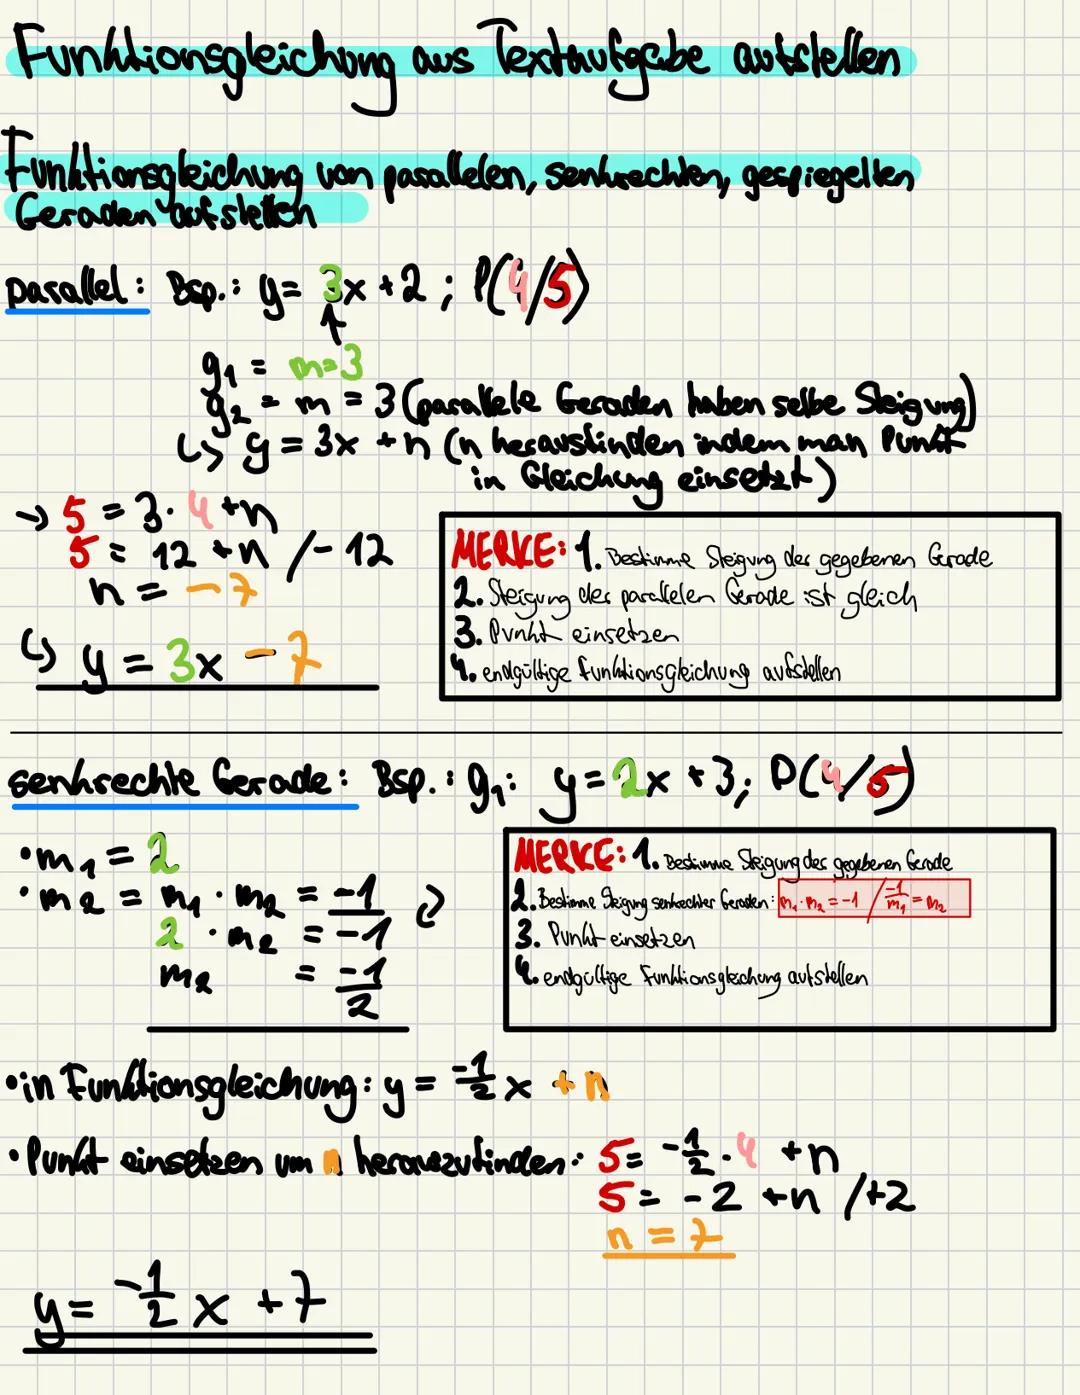 Funktionsgleichung aus Textaufgabe aufstellen
Funktionsgleichung von parallelen, senkrechten, gespiegelten
Geraden aufstellen
parallel: Bsp.: y = 3x + 2 ; P(4/5)
g₁ = m=3
g₂ = m = 3 (parallele Geraden haben selbe Steigung)
↳ y = 3x + n (n herausfinden indem man Punkt
in Gleichung einsetzt)
→ 5 = 3 · 4 + n
5 = 12 + n /- 12
n = -7
↳ y = 3x - 7
MERKE: 1. Bestimme Steigung der gegebenen Gerade
2. Steigung der parallelen Gerade ist gleich
3. Punkt einsetzen
4. endgültige Funktionsgleichung aufstellen
senkrechte Gerade: Bsp.: g₁: y = 2x + 3; P(4/5)
•m₁ = 2
•m₂ = m₁ · m₂ = -1
2 · m₂ = -1
m₂ = -1/2
MERKE: 1. Bestimme Steigung der gegebenen Gerade
2. Bestimme Steigung senkrechter Geraden: m₁ · m₂ = -1 / -1/m₁ = m₂
3. Punkt einsetzen
4. endgültige Funktionsgleichung aufstellen
•in Funktionsgleichung: y = -1/2 x + n
•Punkt einsetzen um n herauszufinden: 5 = -1/2 · 4 + n
5 = -2 + n /+2
n = 7
y = -1/2 x + 7